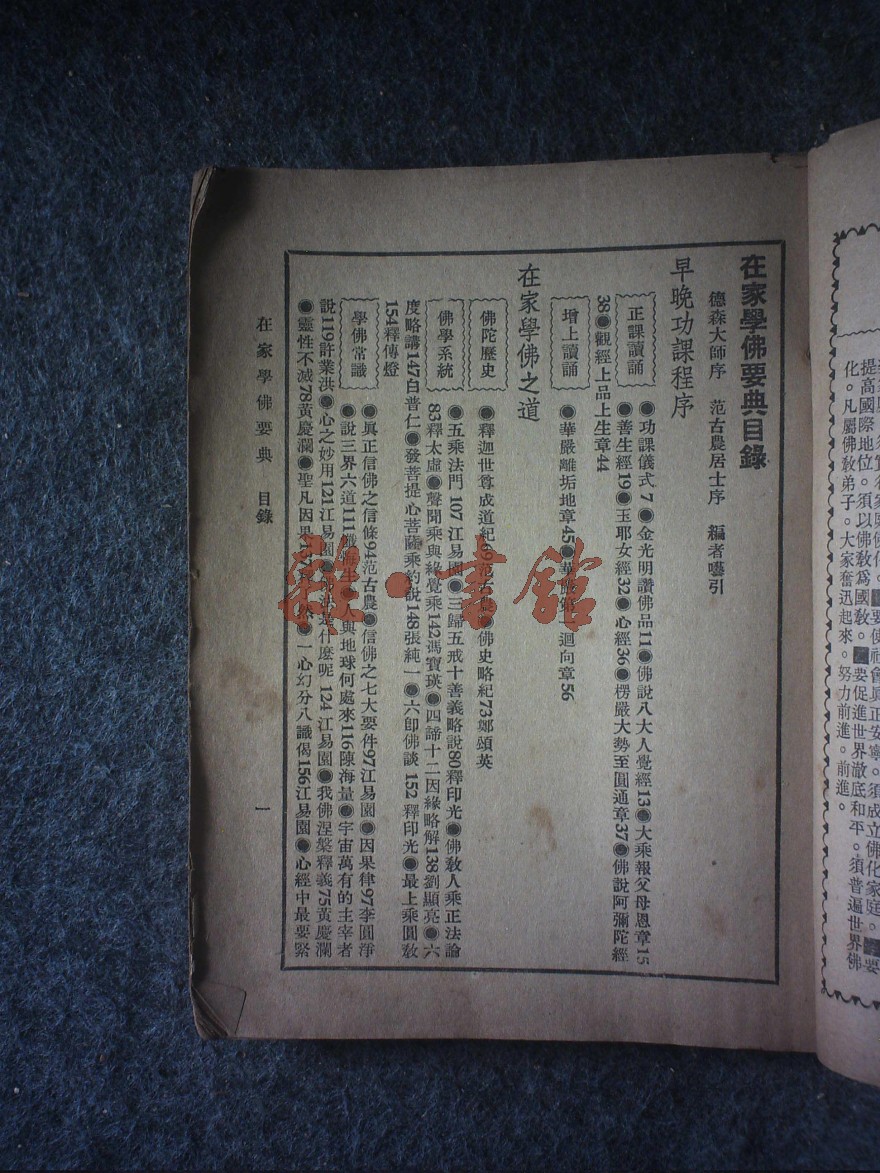 化。凡屬佛教弟子。大家奮迅起來。努力前進。前進。
在家學佛要典目錄
德森大師序　范古農居士序　編者囈引
早晚功課程序
正課讀誦
●功課儀式7●金光明讚佛品11●佛說八大人覺經13●大乘報父母恩章15
●善生經19●玉耶女經32●心經36●楞嚴大勢至圓通章37●佛說阿彌陀經
38●觀經上品上生章44
增上讀誦
●華嚴離垢地章45●華嚴第　迴向章56
在家學佛之道
佛陀歷史
●釋迦世尊成道紀69范古　●佛史略紀73鄭頌英
佛學系統
●五乘法門107江易園●三歸五戒十善義略說80釋印光●佛教人乘正法論
83釋太虛●聲聞乘與緣覺乘142馮寶瑛●四諦十二因緣略解138劉顯亮●六
度略講147白普仁●發菩提心菩薩乘約說148張純一●六卽佛談152釋印光●最上乘圓教
154釋傳燈
學佛常識
●眞正信佛之信條94范古農●信佛之七大要件97江易園●因果律97李圓淨
●說三界六道111　　●人與地球何處來116陳海量●宇宙萬有的主宰者
說119許業洪●心之妙用121江易園●佛法是什麼呢124江易園●我佛涅槃釋義75黃慶瀾
●靈性不滅78黃慶瀾●聖凡因果137　　●一心幻分八識偈156江易園●心經中最要緊
在家學佛要典　目錄
一
雜·書館